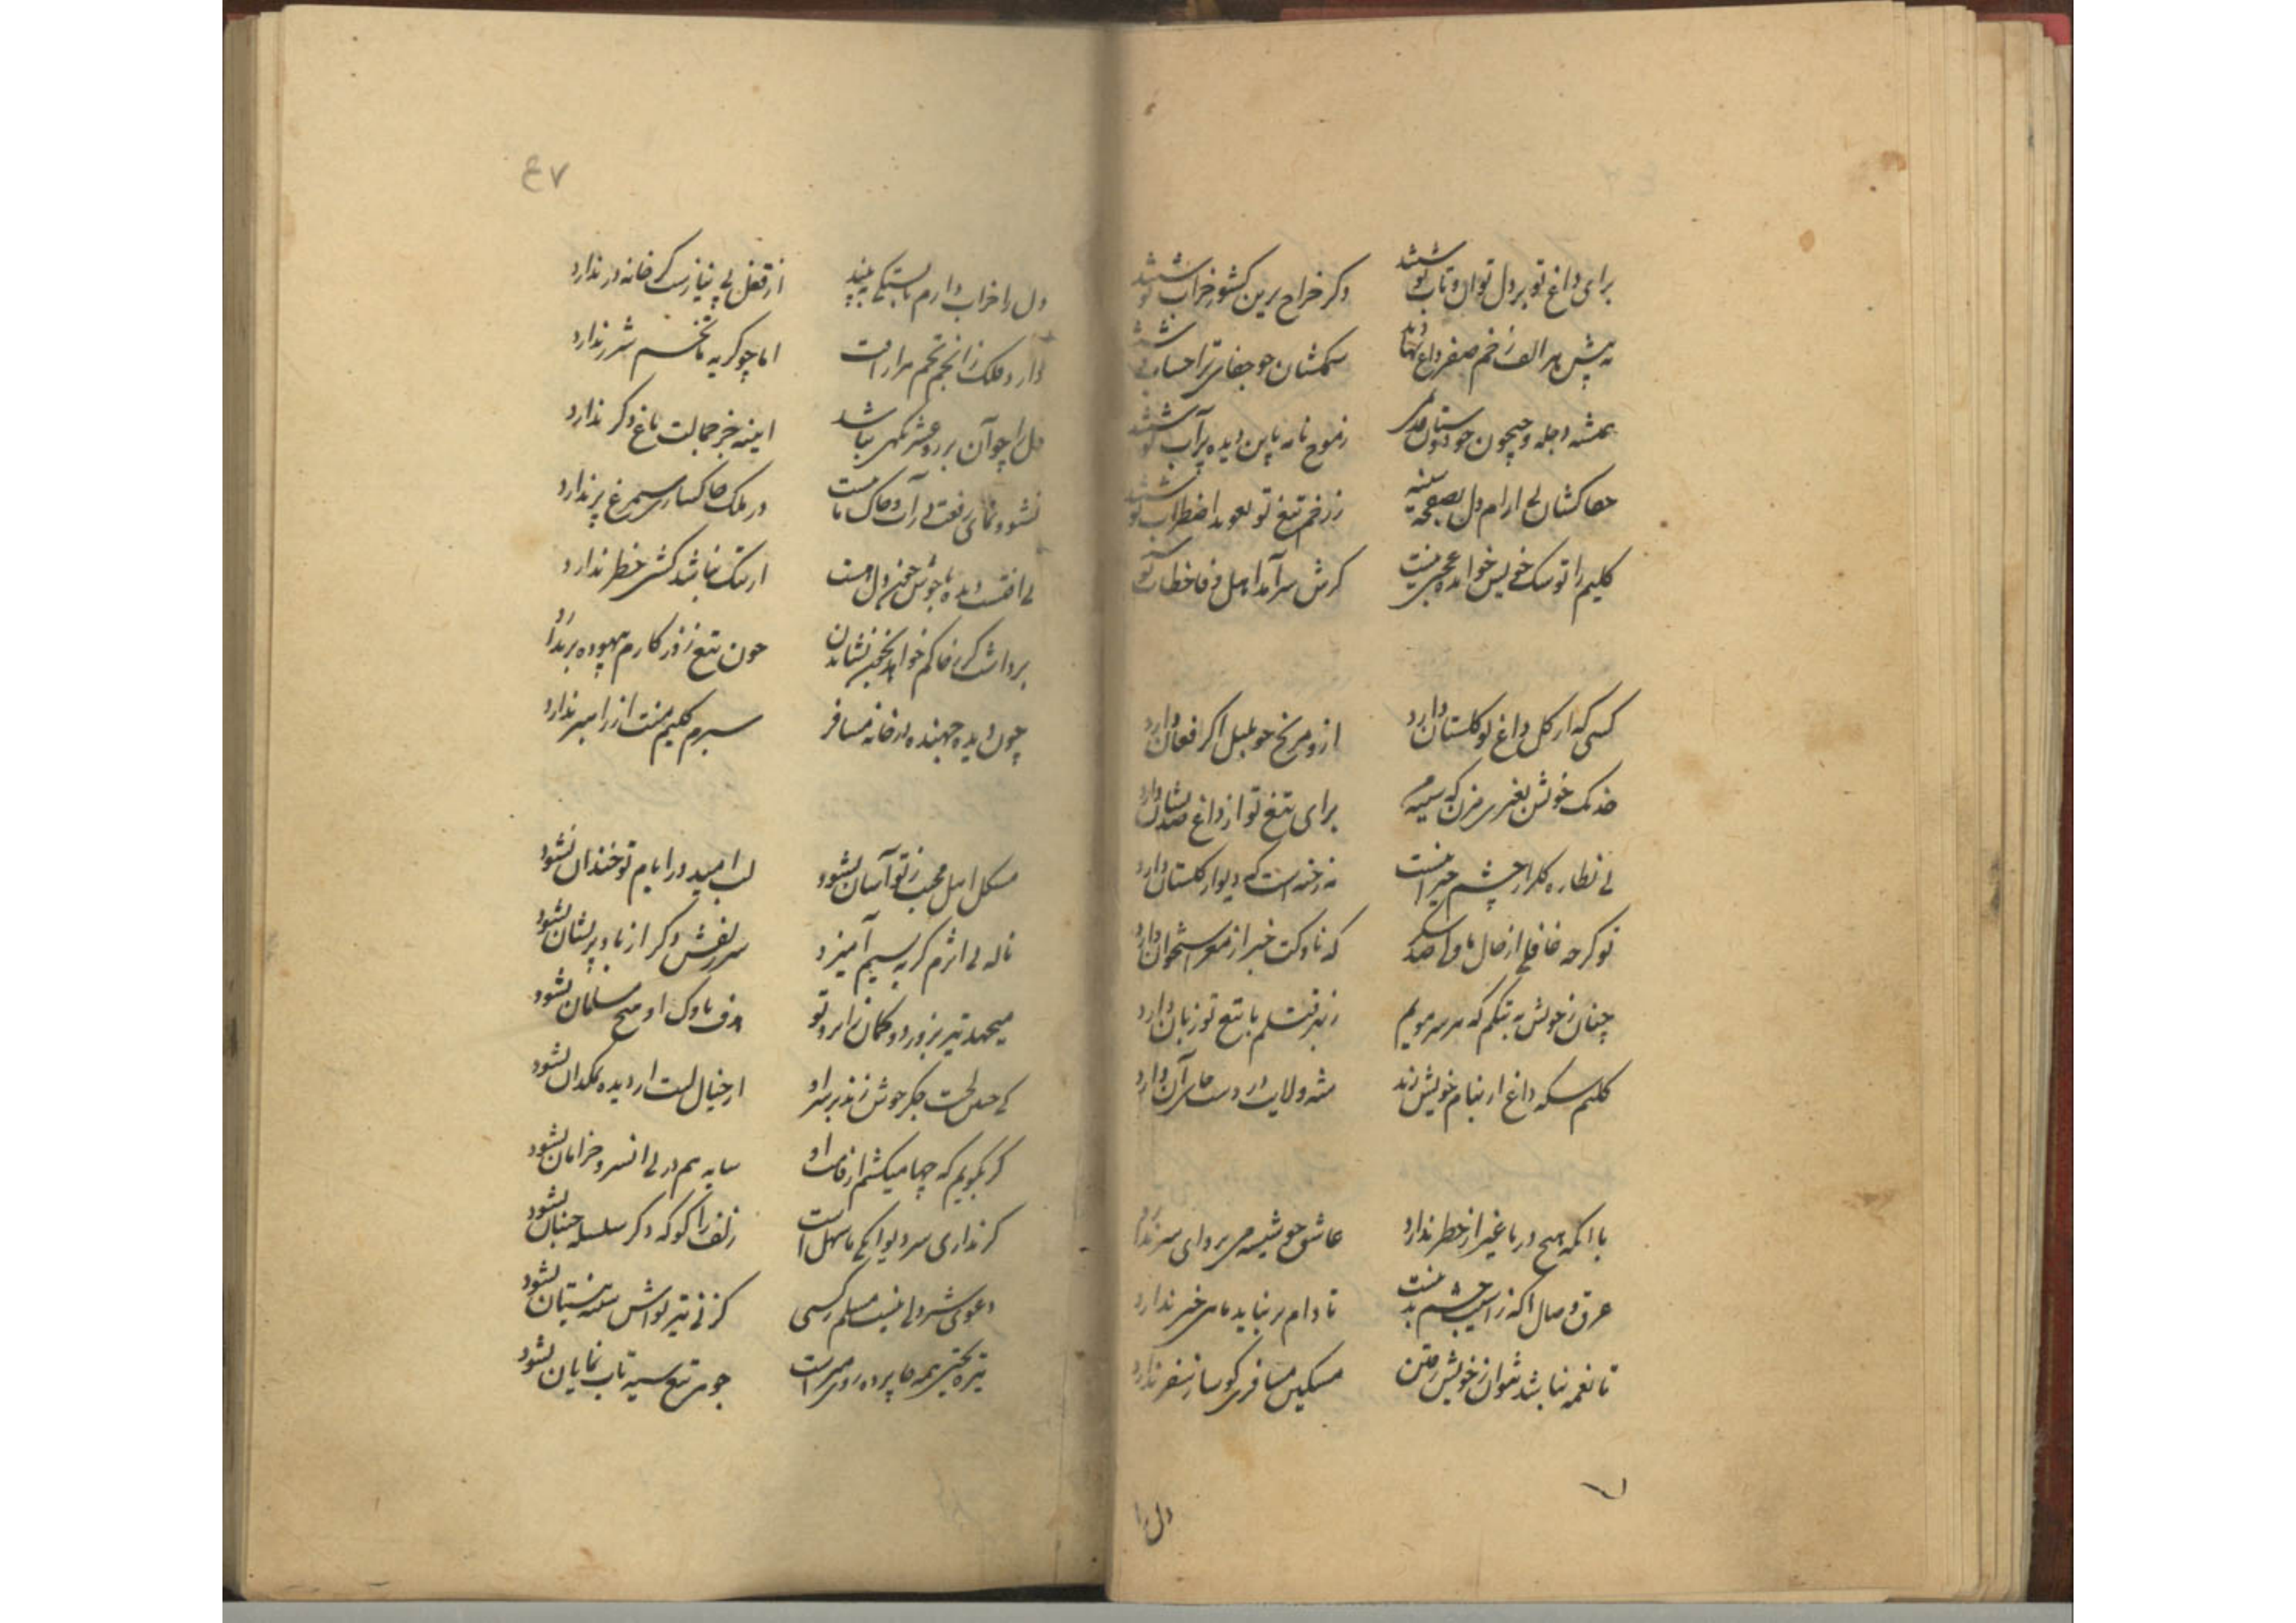 برای داغ تو بر دل توان و تاب نوشتند
دگر خراج برین کشور خراب نوشتند
به پیش هر الف زخم صفر داغ نهادند
ستمکشان چو جفای ترا حساب نوشتند
همیشه دجله و جیحون
ز موج نامه باین دیده پر آب نوشتند
جفاکشان بی آرام دل بصفحه سینه
ز زخم تیغ تو تعویذ اضطراب نوشتند
کلیم را تو سگ خویش خوانده عجبی نیست
گرش سرآمد اهل وفا خطاب نوشتند
کسی که از گل داغ تو گلستان دارد
ازو مرنج چو بلبل اگر فغان دارد
خدنگ خویش بغیری مزن که سینه من
برای تیغ تو از داغ صد نشان دارد
بی نظاره گلزار چشم حیرانست
نه رخنه است که دیوار گلستان دارد
تو گرچه غافلی از حال ما ولی صد شکر
که ناوکت خبر از مغز استخوان دارد
چنان ز خویش به تنگم که هر سر مویم
ز بهر قتلم با تیغ تو زبان دارد
کلیم سکه داغ ار بنام خویش زند
با آنکه هیچ دریا غیر از خطر ندارد
عاشق چو شیشه می پروای سر ندارد
ذوق وصال
تا دام بر نیاید ماهی خبر ندارد
تا نغمه نباشد نتوان ز خویش رفتن
مسکین مسافری کو ساز سفر ندارد
دل را
٤٧
دل را خراب دارم تا بستگی نبیند
از قفل بی نیازست گر خانه در ندارد
دارد فلک ز انجم تخم مرادت
اما چو گریه ما تخم شرر ندارد
دل را چو آن پرروعشرتگهی نباشد
آیینه جز جمالت باغ دگر ندارد
نشو و نمای رفعت در آب و خاک ما نیست
در ملک خاکساری سیمرغ پر ندارد
بی آفتست دیده با جوش خون دل هست
از سنگ نباشد کشتی خطر ندارد
برداشت گر ز خاکم خواهد بخون نشاندن
چون تیغ روزگارم بیهوده بر ندارد
چون دیده جهنده در خانه مسافر
سیرم کلیم منت از راهبر ندارد
مشکل اهل محبت ز تو آسان نشود
لب امید در ایام تو خندان نشود
ناله بی اثرم گر به نسیم آمیزد
سر زلفش دگر از باد پریشان نشود
میجهد تیر بزور دو کمان ز ابروی تو
هدف ناوک او هیچ مسلمان نشود
لخت جگر جوش زند بر سر او
از خیال لبت ار دیده نمکدان نشود
گر بگویم که چها میکشم از قامت او
سایه هم در پی آن سرو خرامان نشود
گر نداری سر دیوانگی ما سهل است
زلف را گو که دگر سلسله جنبان نشود
دعوی شیردلی نیست مسلم ز کسی
گز نی تیر تواش سینه نیستان نشود
تیره بختی همه جا پرده روی هنر است
جوهر تیغ سیه تاب نمایان نشود